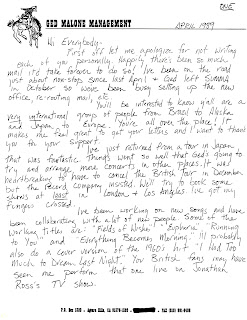 ONE
GED MALONE MANAGEMENT
APRIL 1989
Hi Everybody!
First off let me apologize for not writing
each of you personally. Happily there's been so much
mail it'd take forever to do so! I've been on the road
just about non-stop since last April & Ged left Simmons
in October so we've been busy setting up the new
office, re-routing mail, etc.
You'll be interested to know y'all are a
very international groups of people from Brazil to Alaska
and Japan to Europe. You're all over the place! It
makes me feel great to get your letters and I want to thank
you for your support.
I've just returned from a tour in Japan
that was fantastic. Things went so well that Ged's going to
try and arrange more concerts in other places. It was
heartbreaking to have to cancel the British tour in December
but the record company insisted. We'll try to book some
shows at least in London & Los Angeles. I've got my
fingers crossed.
I've been working on new songs and have
been collaborating with a lot of new people. Some of the
working titles are: "Fields of Wishes", "Euphoria", "Running
to You" and "Everything Becomes Morning". I'll probably
also do a cover version of the 1960's hit "I Had Too
Much to Dream Last Night". You British fans may have
seen me perform that one live on Jonathan
Ross's TV show.